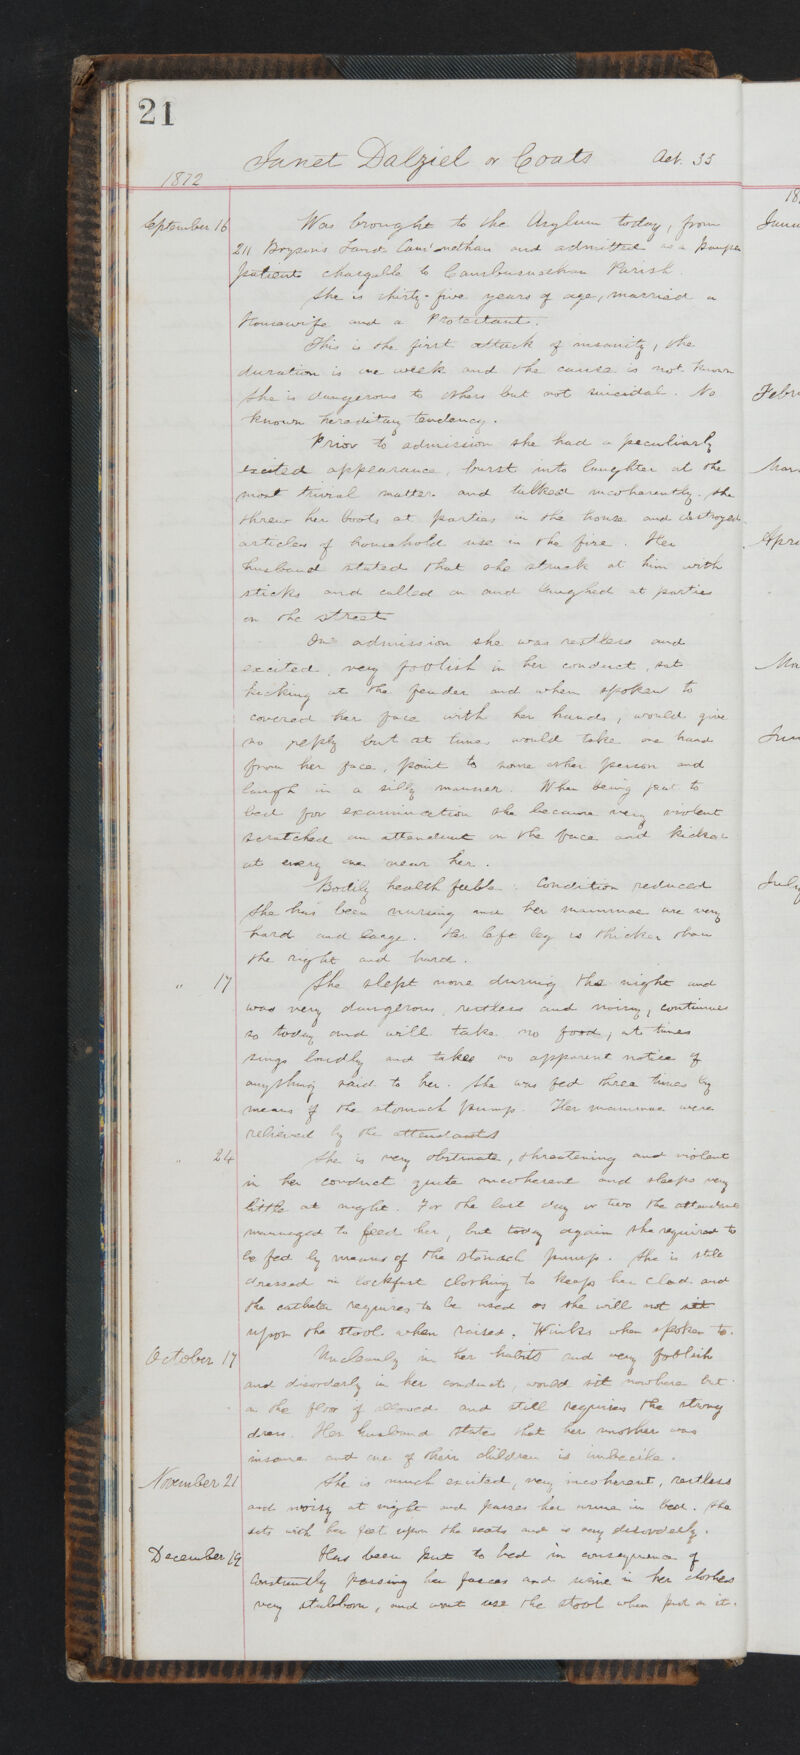 21
Janet Dalziel or Coats Aet. 35
1872
September 16 Was brought to the Asylum today, from
211 Brysons Land and admitted as a pauper
patient chargable to Cambusnethan Parish.
She is thirty-five years of age, married a
housewife and a Protestant.
This is the first attack of insanity, the
duration is one week and the cause is not known
She is dangerous to others but not suicidal. No
known hereditary tendency.
Prior to admission she had a peculiarly
excited appearance, burst into laughter at the
most trivial matter and talked incoherently. She
threw her boots at parties in the house and destroyed
articles of household use in the fire. Her
husband stated that she struck at him with
sticks and called on and laughed at parties
on the street
On admission she was restless and
excited, very foolish in her conduct, sat
kicking at the fender and when spoken to
covered her face with her hands, would give
no reply but at times would take one hand
from her face, point to some other person and
laugh in a silly manner. When being put to
bed for examination she became very violent
scratched an attendant on the face and kicked
at every one near her.
Bodily health feeble. Condition reduced
She has been nursing and her mammae are very
hard and large. Her left leg is thicker than
the right and hard.
" 17 She slept none during the night and
was very dangerous, restless and noisy, continues
so today and will take no food, at times
sings loudly and takes no apparent notice of
anything said to her. She was fed three times by
means of the stomach pump. Her mammae were
relieved by the attendants
" 24 She is very obstinate, threatening and violent
in her conduct quite incoherent and sleeps very
little at night. For the last day or two the attendants
managed to feed her, but today again she required to
be fed by means of the stomach pump. She is still
dressed in lockfast clothing to keep her clad and
the catheter requires to be used as she will not sit
upon the stool when raised. Winks when spoken to.
October 17 Uncleanly in her habits and very foolish
and disorderly in her conduct, would sit nowhere but
on the floor if allowed and still requires the strong
dress. Her husband states that her mother was
insane and one of their children is imbecile.
November 21 She is much excited, very incoherent, restless
and noisy at night and passes her urine in bed. She
sits with her feet upon the seats and is very disorderly.
December 19 Has been put to bed in consequence of
constantly passing her faeces and urine in her clothes
very stubborn, and wont use the stool when put on it.
18
Janu
Febru
Marc
Apri
Ma
Jun
July